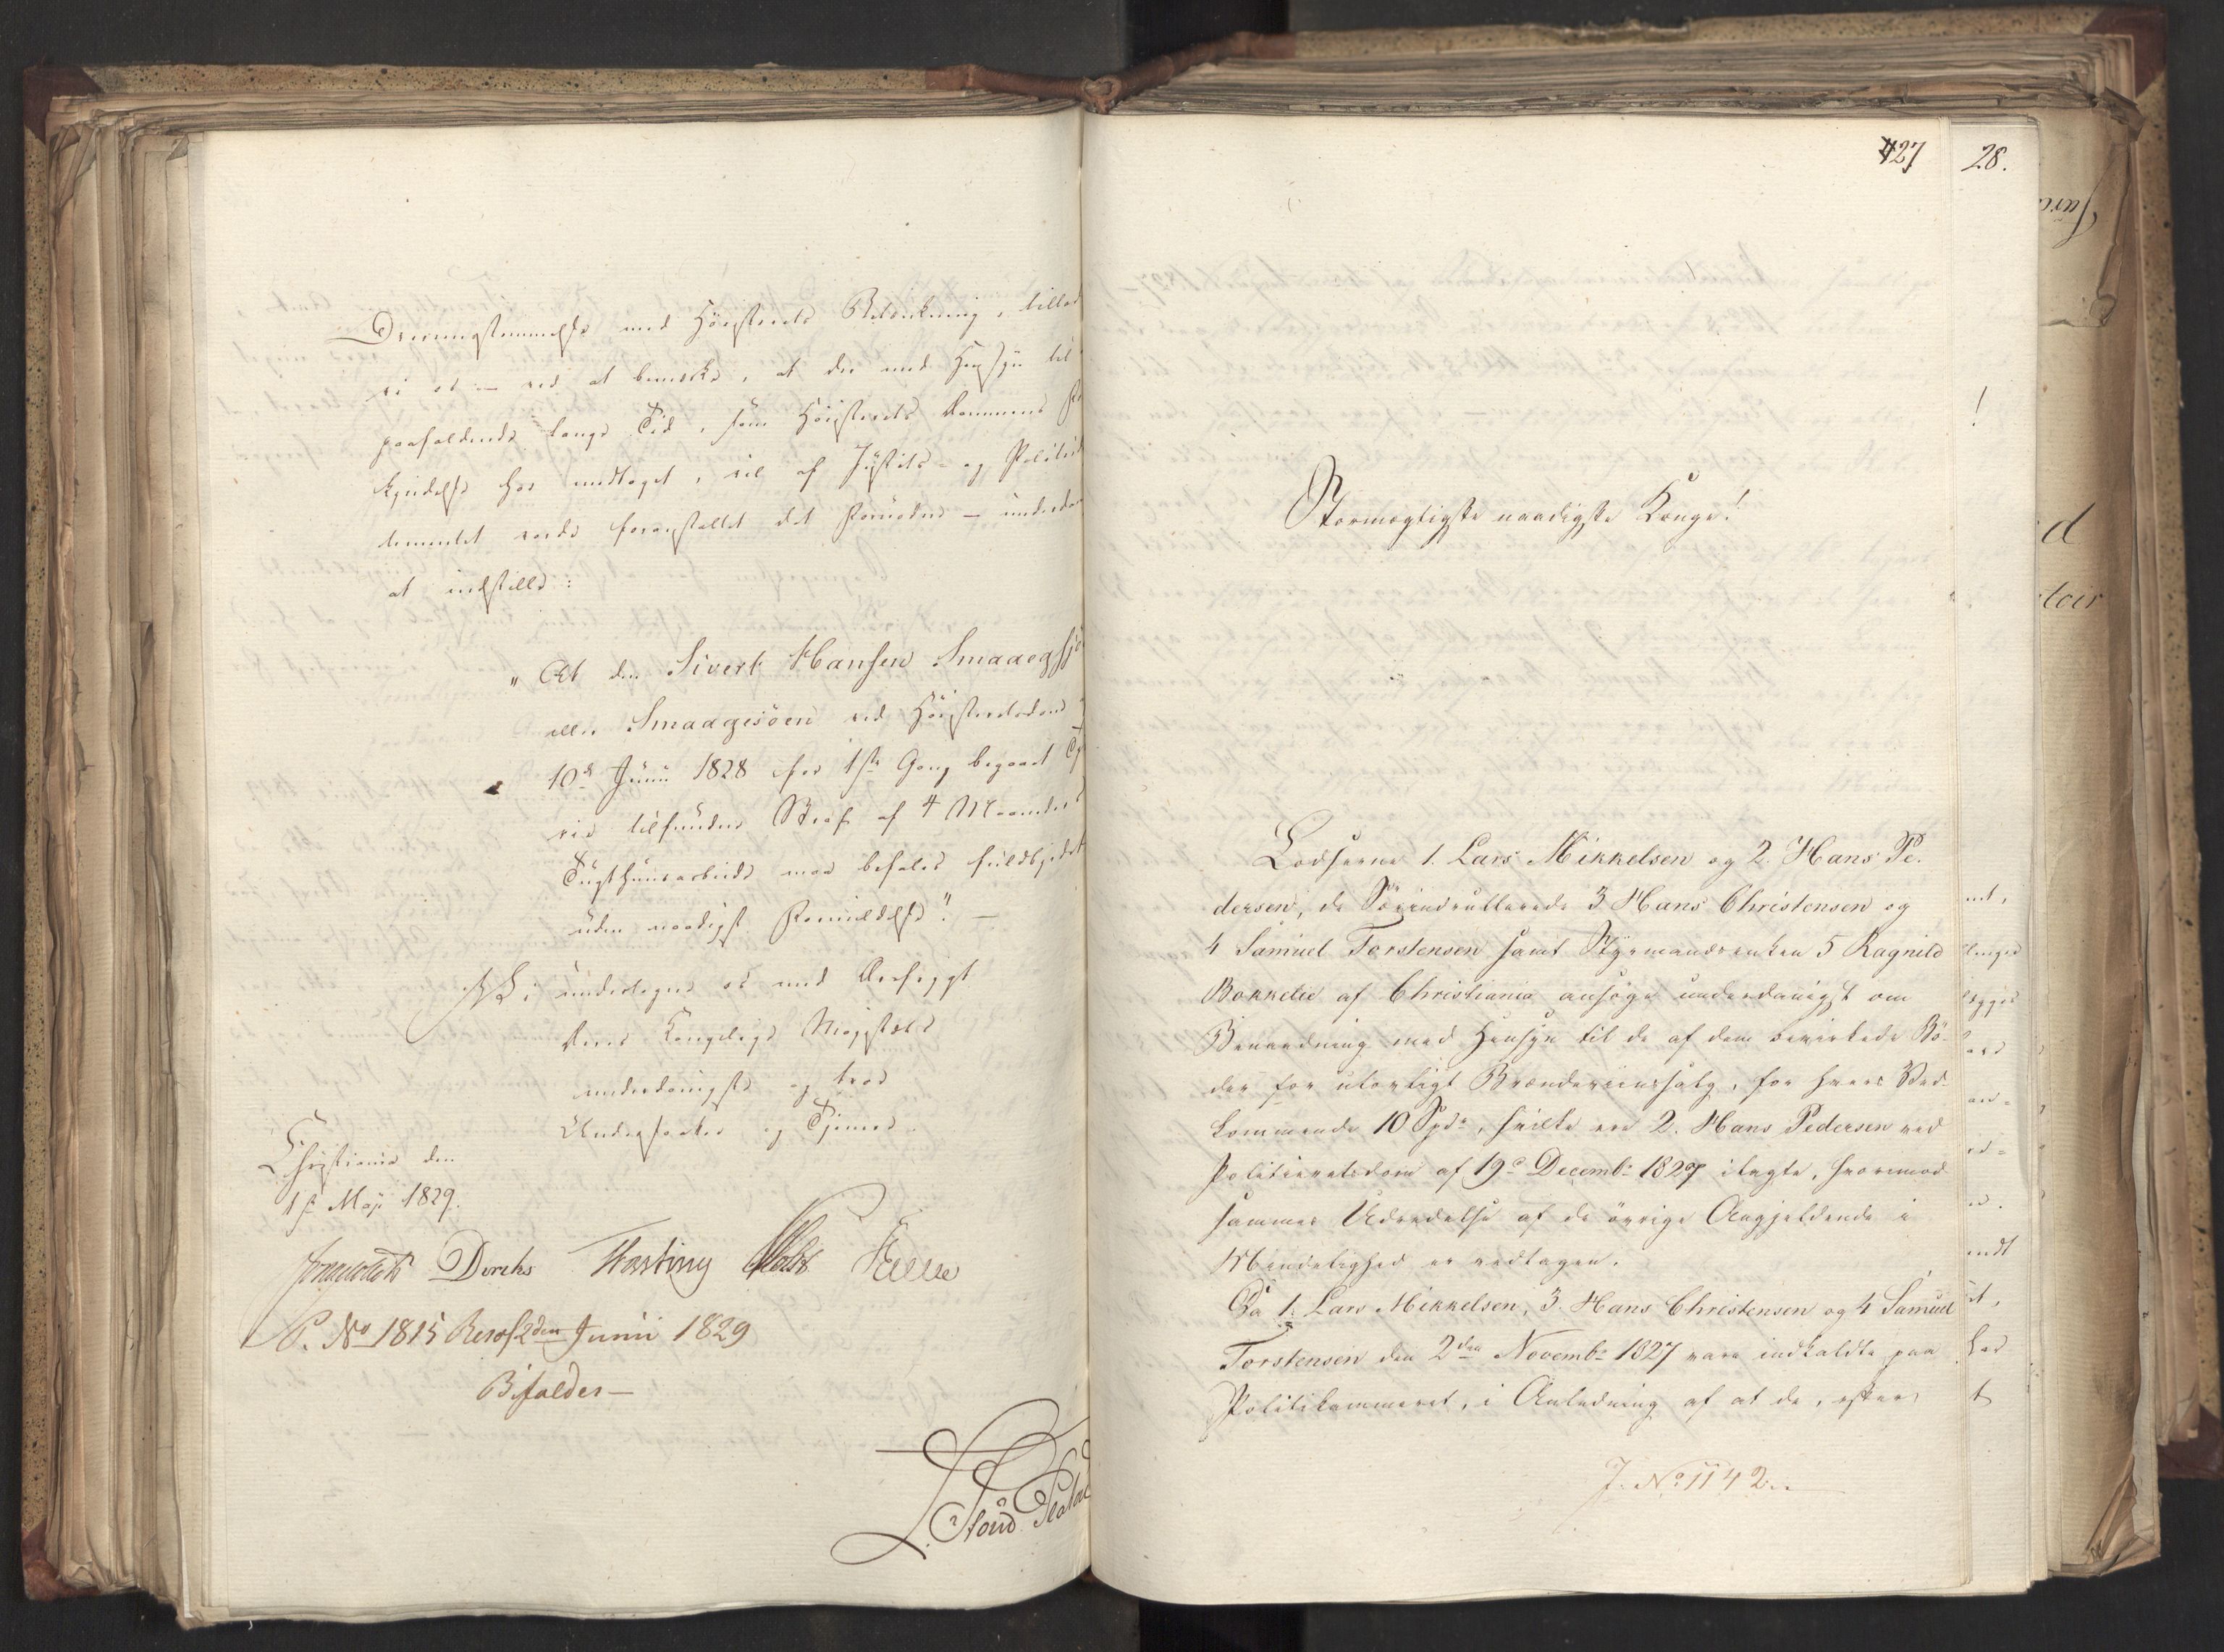 Overeensstemmelse med Höiesterets Betænkning, tillad
vi os - ved at bemærke, at der med Hensyn til
paafaldende lange Tid, som Höiesterets Dommens
kyndelse har medtaget, vil af Justits- og Politid
tementet vorde foranstaltet det Fornødne - underda
at indstille:
"At den Sivert Hansen Smaaegsjö
eller Smaagesöen ved Höiesteretsdom
10de Junii 1828 for 1ste Gang begaaet Ty
rie tilfundne Straf af 4 Maaneders
Tugthuusarbeide maa befales fuldbyrdet
uden naadigst Formildelse". -
Vi undertegne os med Ærefrygt
Deres Kongelige Majestæts
underdanigste og troe
Undersaatter og Tjenere.
Christiania den
1ste Maji 1829.
Diriks Hasting Holst
P. No 1815 Resol 2den Junii 1829
Bifaldes -
427
Stormægtigste naadigste Konge!
Lodserne 1. Lars Mikkelsen og 2. Hans Pe-
dersen, de Söeindrullerede 3 Hans Christensen og
4 Samuel Torstensen samt Styrmandsenken 5 Ragnild
Bokkelie af Christiania ansöge underdanigst om
Benaadning med Hensyn til de af dem bevirkede Bö-
der for ulovligt Brændeviinssalg, for hver Ved-
kommende 10 Spdr, hvilke ere 2. Hans Pedersen ved
Politieretsdom af 19de Decembr 1827 ilagte, hvorimod
sammes Udredelse af de övrige Angjeldende i
Mindelighed er vedtagen.
Da 1. Lars Mikkelsen, 3. Hans Christensen og 4 Samuel
Torstensen den 2den Novembr 1827 vare indkaldte paa
Politikammeret, i Anledning af at de, efter
J. No 1142.
28.
!